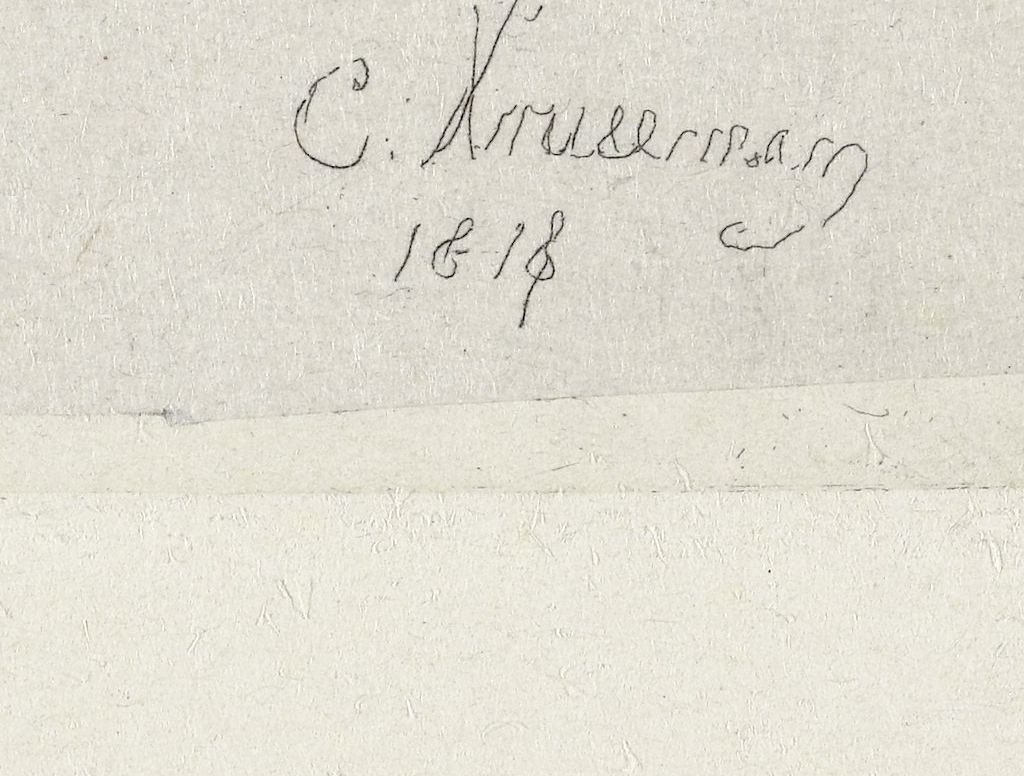 C. Kruseman
1818